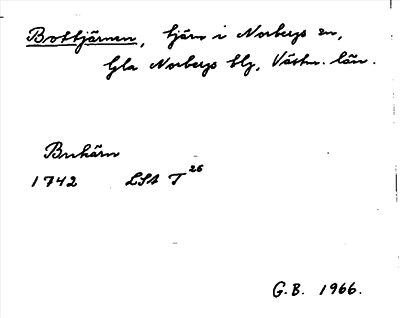 Bottjärnen, tjärn i Norbergs sn,
Gla Norbergs blg, Västm. län.
1742 LSA T 26
G.B. 1966.